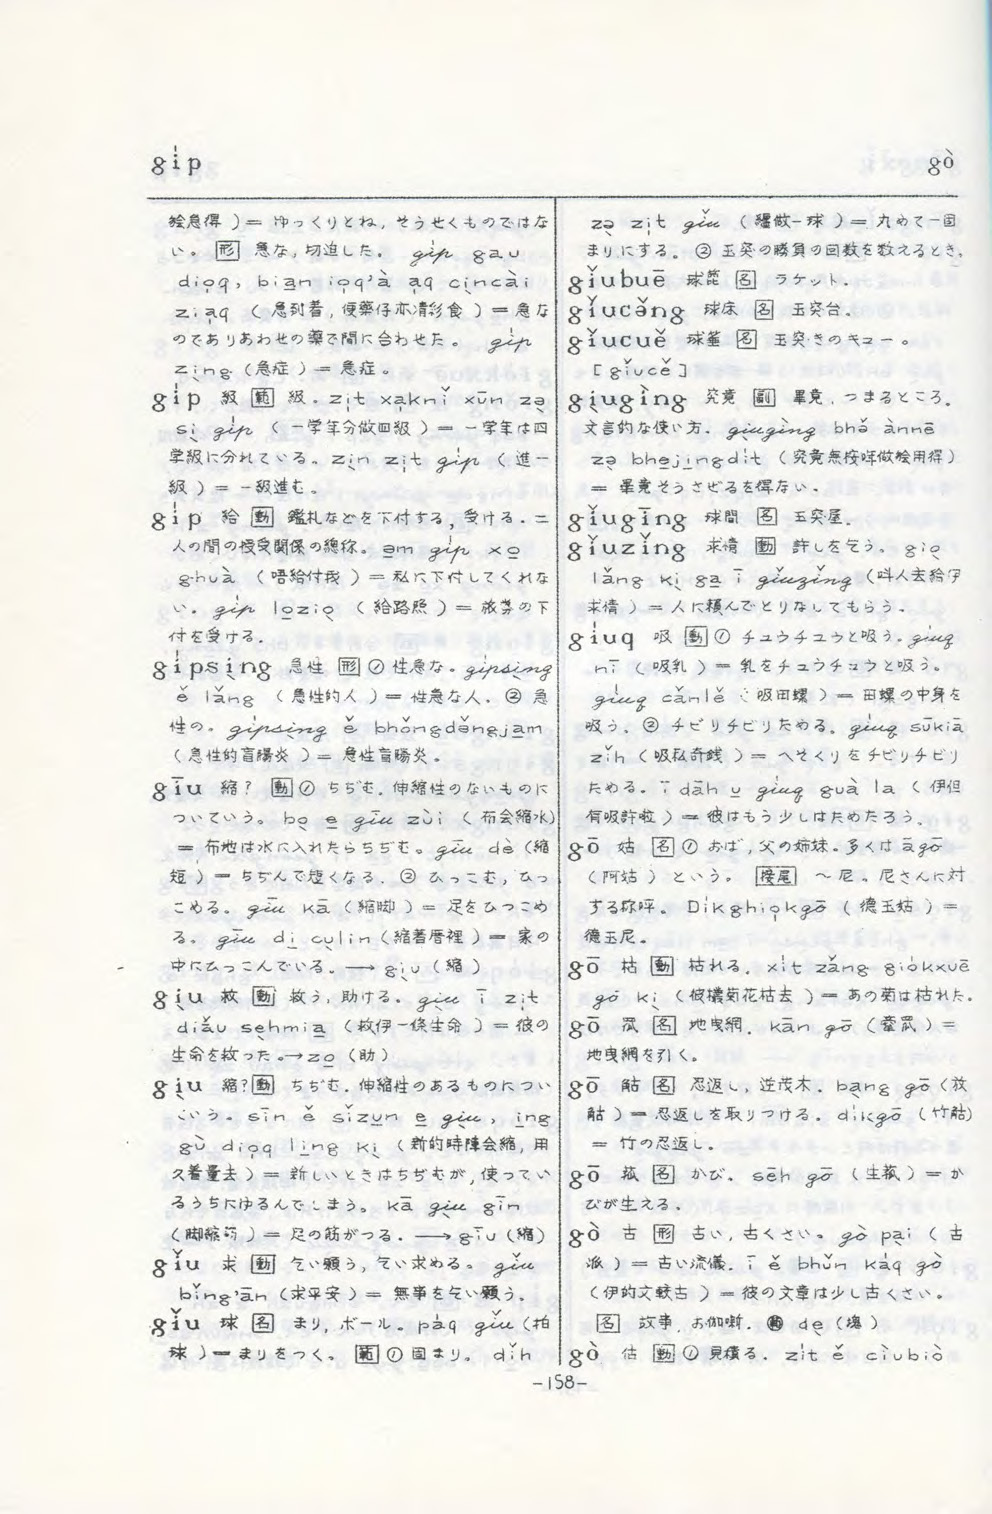 gi̍p
gò
絵急得 ）＝ ゆっくりとね，そうせくものではな
い。 形 急な，切迫した． gi̍p ga̱u
di̱o̱q, bia̱n io̱q'à a̱q cincài
zi̱a̱q （急到着，便藥仔亦凊彩食 ）＝ 急な
のでありあわせの藥で間に合わせた。 gi̍p
zi̱ng（急症）＝ 急症。
gi̍p 級 範 級．zi̍t xa̱kni̍ xūn zə
si̱ gi̍p （一学年分做四級 ）＝ 一学年は四
学級に分れている。zi̱n zi̍t gi̍p （進一
級 ）＝ 一級進む。
gi̍p 給 動 鑑札などを下付する，受ける．二
人の間の授受関係の總称。əm gi̍p xo̱
ghuà （唔給付我 ）＝ 私に下付してくれな
い．gi̍p lo̱zio̱ （給路照 ）＝ 旅券の下
付を受ける．
gi̍psi̱ng 急性 形 ① 性急な。gi̍psi̱ng
ě lǎng （急性的人 ）＝ 性急な人．② 急
性の．gi̍psi̱ng ě bhǒngdǒngja̱m
（急性的盲腸炎 ）＝ 急性盲腸炎．
gīu 縮？ 動 ① ちぢむ．伸縮性のないものに
ついていう。bo̱ e̱ gīu zùi （布会縮水）
＝ 布地は水に入れたらちぢむ。gīu dè（縮
短 ）＝ ちぢんで短くなる．② ひっこむ，ひっ
こめる。gīu kā（縮脚 ）＝ 足をひっこめ
る。gīu di̱ cu̱lin（縮着厝裡 ）＝ 家の
中にひっこんでいる。⟶ gi̱u（縮）
gi̱u 救 動 救う，助ける．gi̱u ī zi̍t
diǎu se̱hmia̱ （救伊一條生命 ）＝ 彼の
生命を救った。→zo̱（助）
gi̱u 縮？動 ちぢむ．伸縮性のあるものについ
いう。sīn ě sǐzu̱n e̱ gi̱u，i̱ng
gù di̱o̱q li̱ng ki̱ （新的時陣会縮，用
久着量去 ）＝ 新しいときはちぢむが，使ってい
るうちにゆるんでしまう。kā gi̱u gīn
（脚縮筋 ）＝ 足の筋がつる．⟶gīu（縮）
gǐu 求 動 乞い願う，乞い求める。gǐu
bǐng'ān（求平安 ）＝ 無事を乞い願う。
gǐu 球 名 まり，ボール．pa̍q gǐu（拍
球 ）＝まりをつく。範 ① 固まり。di̍h
zə̱ zi̍t gǐu （纏做一球 ）＝ 丸めて一固
まりにする。② 玉突の勝負の回数を数えるとき。
gǐubuē 球箆 名 ラケット．
gǐucə̌ng 球床 名 玉突台．
gǐucuě 球箠 名 玉突きのキュー。
[gǐucě]
gi̱ugi̱ng 究竟 副 畢竟，つまるところ。
文言的な使い方．gi̱ugi̱ng bhə̌ ànnē
zə̱ bhe̱ji̱ngdi̍t （究竟無按呍做絵用得）
＝ 畢竟そうさぜるを得ない．
gǐugīng 球間 名 玉突屋．
gǐuzǐng 求情 動 許しを乞う。gio̱
lǎng ki̱ ga̱ ī gǐuzǐng（叫人去給伊
求情 ）＝ 人に頼んでとりなしてもらう．
gi̍uq 吸 動 ① チュウチュウと吸う．gi̍uq
nī （吸乳 ）＝ 乳をチュウチュウと吸う。
gi̍uq cǎnlě （吸田螺 ）＝ 田螺の中身を
吸う．② チビリチビリためる。gi̍uq sūkiā
zǐh（吸私奇銭 ）＝ へそくりをチビリチビリ
ためる．ī dāh u̱ gi̍uq guà la （伊但
有吸許啦 ）＝ 彼はもう少しはためたろう．
gō 姑 名 ① おば，父の姉妹。多くは āgō
（阿姑 ）という。接尾 ～尼。尼さんに対
する称呼．Di̍kghio̱kgō （德玉姑 ）＝
德玉尼。
gō 枯 動 枯れる．xi̍t zǎng gio̍kxuē
gō ki̱ （彼欉菊花枯去 ）＝ あの菊は枯れた．
gō 罛 名 地曳網．kān gō（牽罛 ）＝
地曳網を引く。
gō 䉉 名 忍返し，逆茂木．ba̱ng gō（放
䉉 ）＝忍返しを取りつける．di̍kgō （竹䉉）
＝ 竹の忍返し。
gō 菰 名 かび．sēh gō （生菰 ）＝か
びが生える．
gò 古 形 古い，古くさい。gò pa̱i （古
派 ）＝ 古い流儀．ī ě bhǔn ka̍q gò
（伊的文較古 ）＝ 彼の文章は少し古くさい。
名 故事，お伽噺．de̱（塊）
gò 估 動 ① 見積る．zi̍t ě cìubiò
-158-